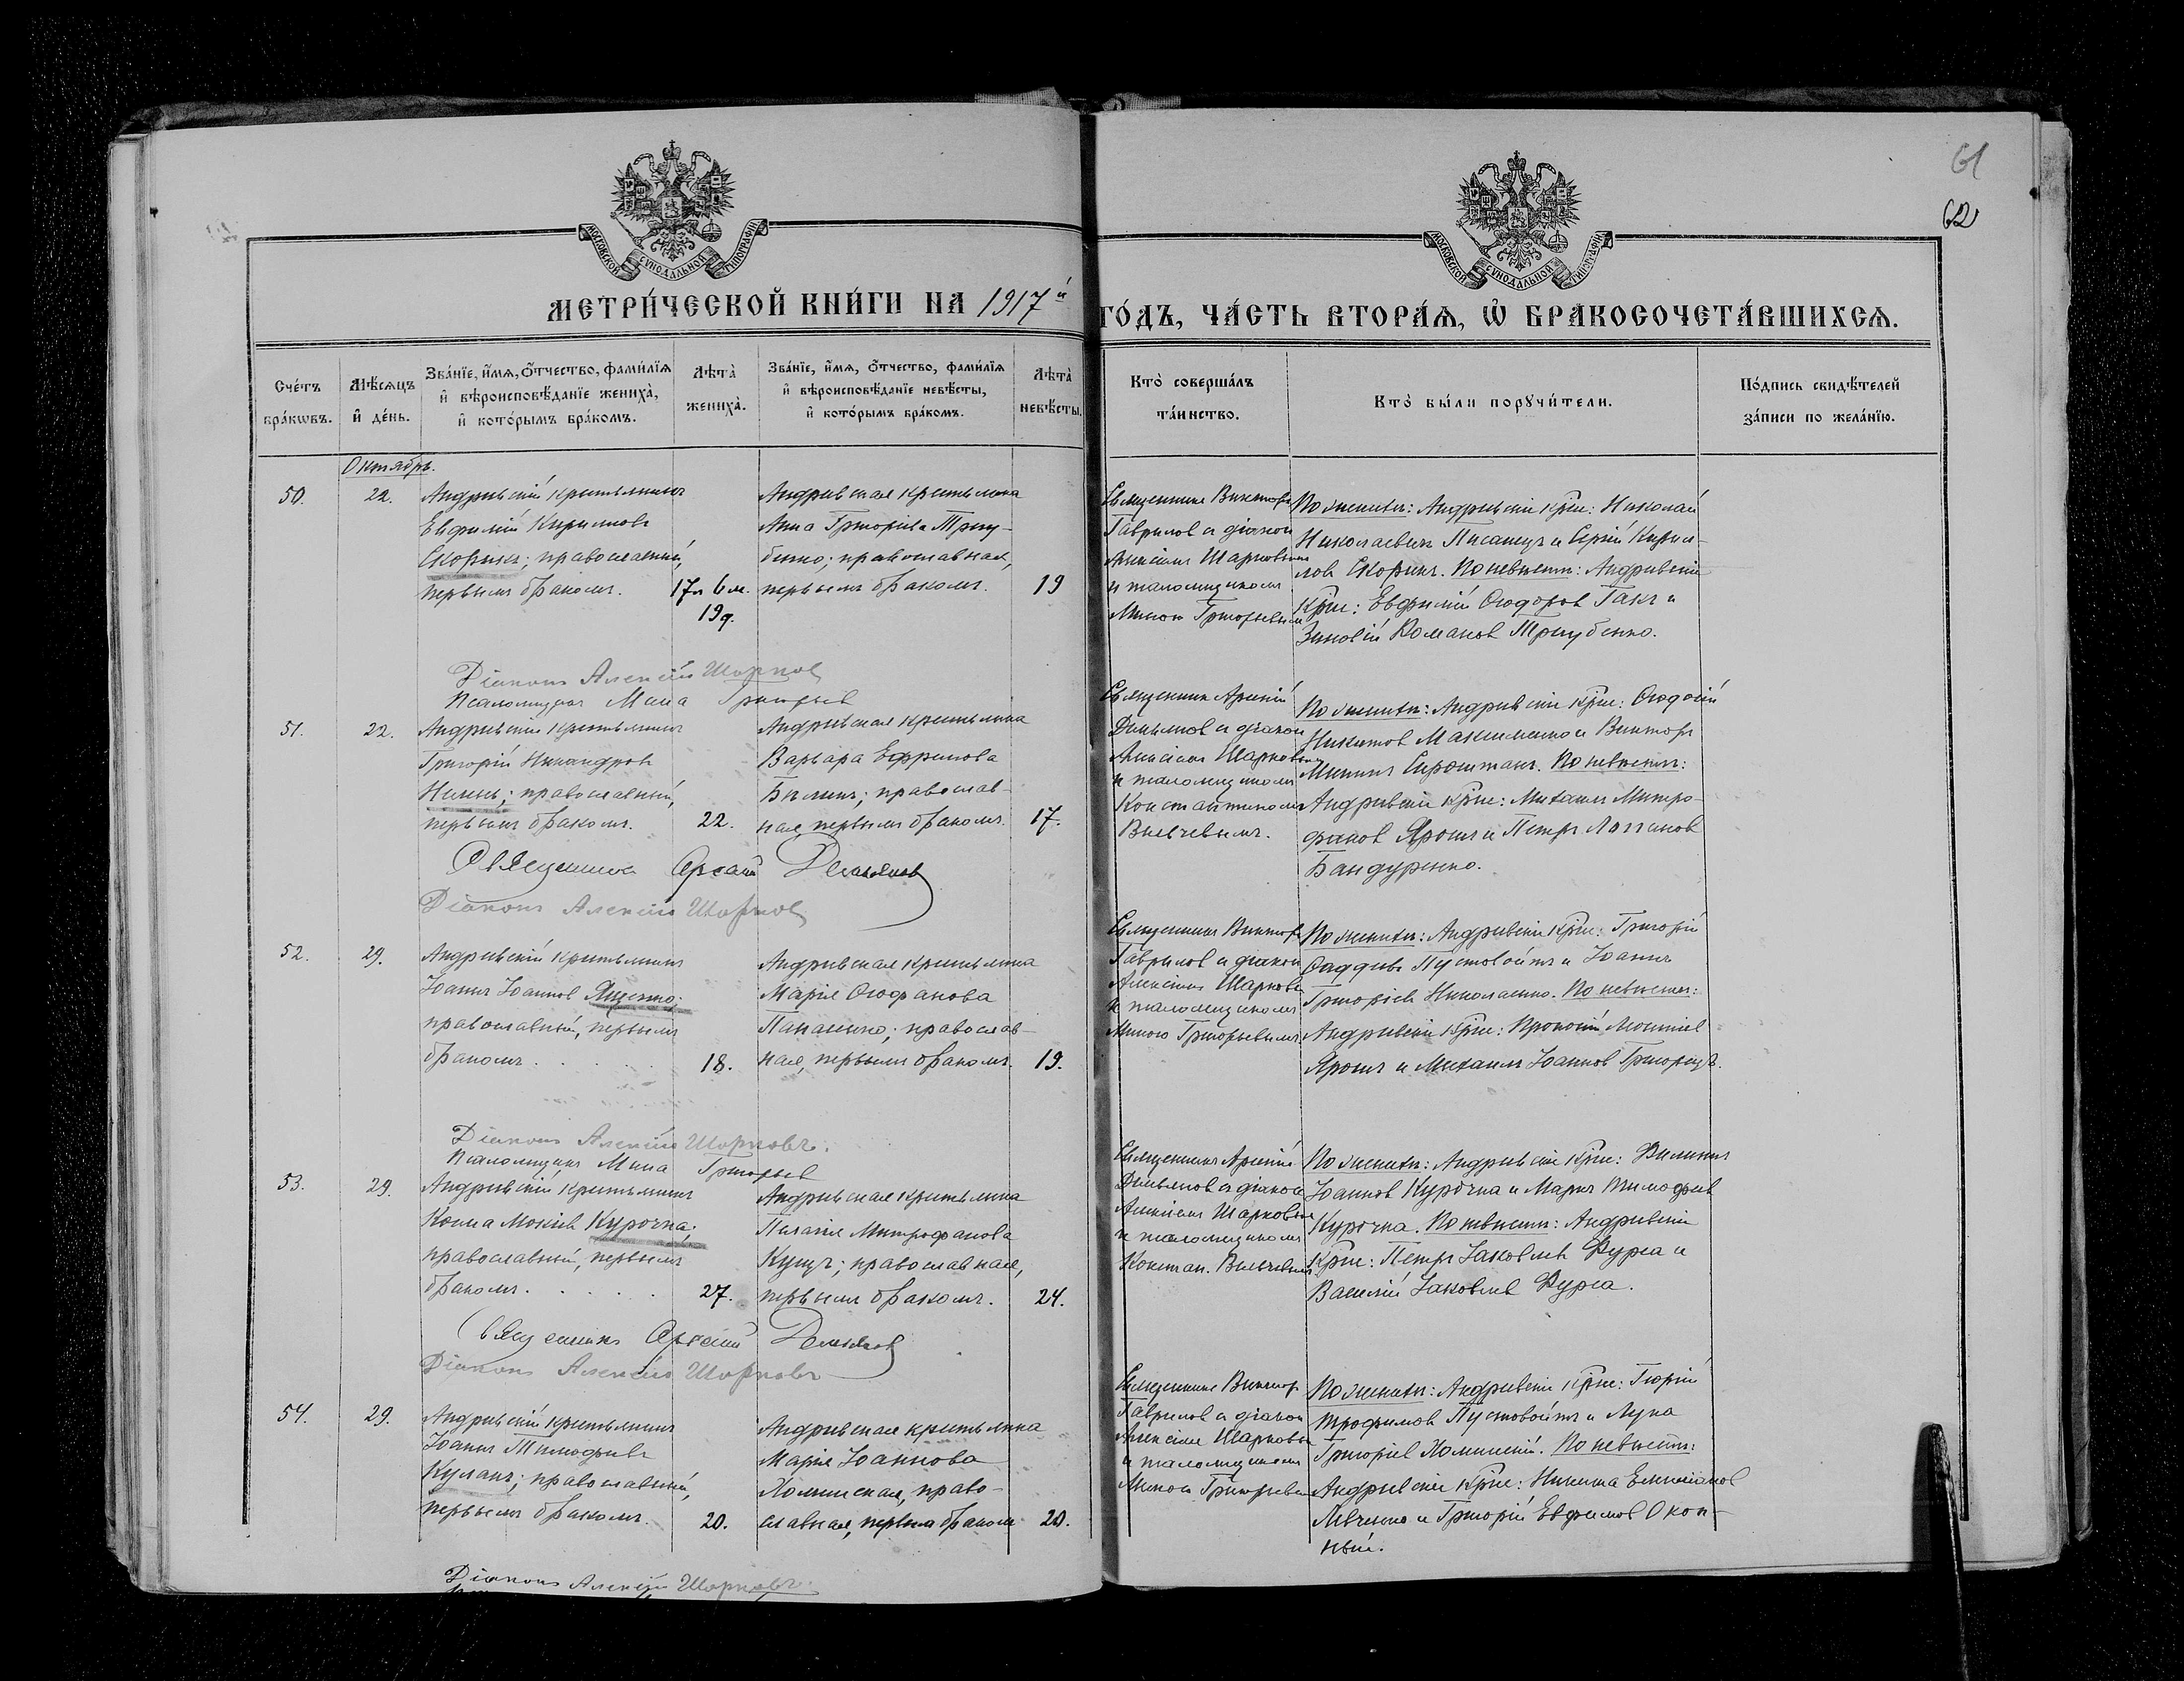 61
62
МОСКОВСКОЙ СѴНОДАЛЬНОЙ ТИПОГРАФІИ
МОСКОВСКОЙ СѴНОДАЛЬНОЙ ТИПОГРАФІИ
МЕТРИ́ЧЕСКОЙ КНИ́ГИ НА 1917й
ГО́ДЪ, ЧА́СТЬ ВТОРА́Ѧ, Ѡ҆ БРАКОСОЧЕТА́ВШИХСѦ.
Сче́тъ бра́кѡвъ.
Мѣ́сѧцъ и҆ де́нь.
Зва́нїе, и҆́мѧ, ѻ҆́тчество, фами́лїѧ и҆ вѣроисповѣ́данїе жениха̀, и҆ кото́рымъ бра́комъ.
Лѣта̀ жениха̀.
Зва́нїе, и҆́мѧ, ѻ҆́тчество, фами́лїѧ и҆ вѣроисповѣ́данїе невѣ́сты, и҆ кото́рымъ бра́комъ.
Лѣта̀ невѣ́сты.
Кто̀ соверша́лъ та́инство.
Кто̀ бы́ли порꙋчи́тели.
По́дпись свидѣ́телей за́писи по жела́нїю.
Октябрь.
50.
22.
Андреевскій крестьянинъ
Евфимій Кириловъ
Скорикъ; православный,
первымъ бракомъ.
17л 6м.
19д.
Андреевская крестьянка
Анна Григоріева Тригу-
бенко; православная,
первымъ бракомъ.
19
Священникъ Викторъ
Гавриловъ съ діакон
Алексіемъ Шарковымъ
и псаломщикомъ
Миною Григорьевым
По женихѣ: Андреевскіе крṯне: Николай
Николаевичъ Писанецъ и Сергій Кирил-
ловъ Скорикъ. По невѣстѣ: Андреевскіе
крṯне: Евфимій Ѳеодоров Гакъ и
Зиновій Романов Тригубенко.
Діаконъ Алексій Шарков
Псаломщикъ Мина Григорьев
51.
22.
Андреевскій крестьянинъ
Григорій Никандровъ
православный,
первымъ бракомъ.
22.
Андреевская крестьянка
Варвара Ефремова
православ-
ная, первымъ бракомъ.
17.
Священник Арсеній
Демьянов съ діакон
Алексіемъ Шарковым
и псаломщикомъ
Константиномъ
По женихѣ: Андреевскіе крṯне: Ѳеодосій
Никитов Максименко и Викторъ
Мининъ Сероштанъ. По невѣстѣ:
Андреевскіе крṯне: Михаилъ Митро-
фанов Ярошъ и Петръ
Бандуренко.
Священникъ Арсеній Демьянов
Діаконъ Алексій Шарков
52.
29.
Андреевскій крестьянинъ
Іоаннъ Іоаннов Яценко;
православный, первымъ
бракомъ.
18.
Андреевская крестьянка
Марія Стефанова
Панасенко; православ-
ная, первымъ бракомъ.
19.
Священникъ Викторъ
Гаврилов съ діакон
Алексіемъ Шарковым
и псаломщикомъ
Миною Григорьевымъ
По женихѣ: Андреевскіе крṯне: Григорій
Фаддеевъ Пустовойтъ и Іоаннъ
Григоріев Николаенко. По невѣстѣ:
Андреевскіе крṯне: Прокопій
Ярошъ и Михаилъ Іоаннов
Діаконъ Алексій Шарковъ.
Псаломщикъ Мина Григорьев
53.
29.
Андреевскій крестьянинъ
Косма Мокіев Курочка;
православный, первымъ
бракомъ.
27.
Андреевская крестьянка
Пелагія Митрофанова
Куцъ; православная,
первымъ бракомъ.
24.
Священникъ Арсеній
Демьянов съ діакон
Алексіемъ Шарковым
и псаломщикомъ
Констан.
По женихѣ: Андреевскіе крṯне: Филиппъ
Іоаннов Курочка и Маркъ Тимофеев
Курочка. По невѣстѣ: Андреевскіе
крṯне: Петръ Іаковлев Фурса и
Василій Іаковлев Фурса.
Священникъ Арсеній Демьянов
Діаконъ Алексій Шарковъ
54.
29.
Андреевскій крестьянинъ
Іоаннъ Тимофеевъ
Куланъ; православный,
первымъ бракомъ.
20.
Андреевская крестьянка
Марія Іоаннова
право-
славная, первым браком
20.
Священникъ Викторъ
Гаврилов съ діакон
Алексіемъ Шарковым
и псаломщикомъ
Миною Григорьевым
По женихѣ: Андреевскіе крṯне: Георгій
Трофимов Пустовойтъ и Лука
Григоріев По невѣстѣ:
Андреевскіе крṯне: Никита
Левченко и Григорій Евфимов Окоп-
ный.
Діаконъ Алексій Шарковъ.